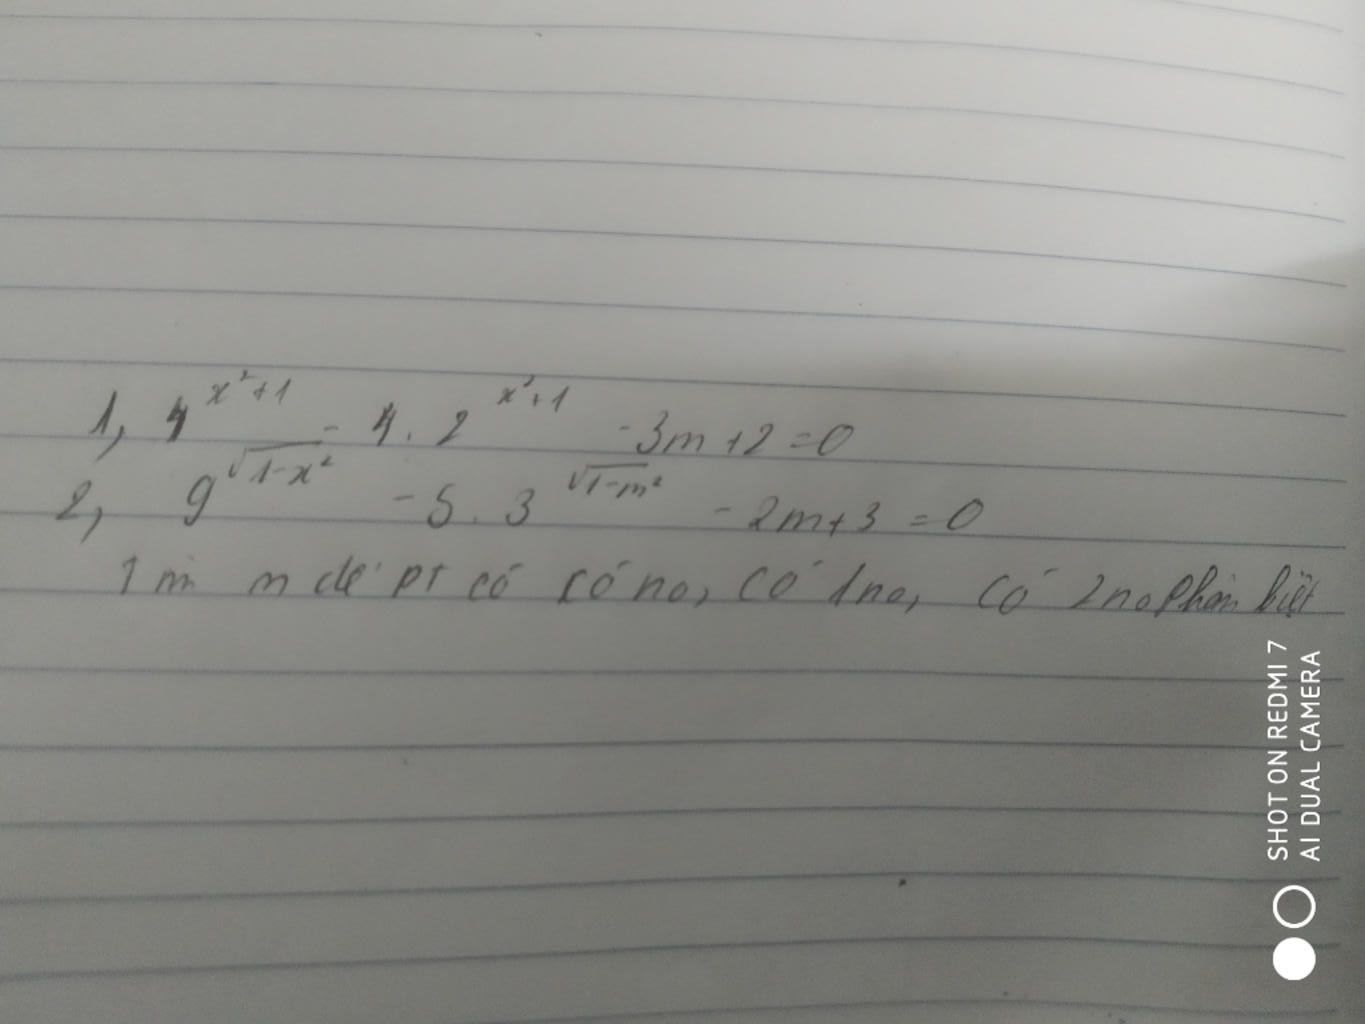 1, 4^{x²+1} - 4. 2^{x²+1} - 3m + 2 = 0
2, 9^{√1-x²} - 5. 3^{√1-m²} - 2m + 3 = 0
Tìm m để pt có có no, có 1no, có 2no phân biệt
SHOT ON REDMI 7
AI DUAL CAMERA